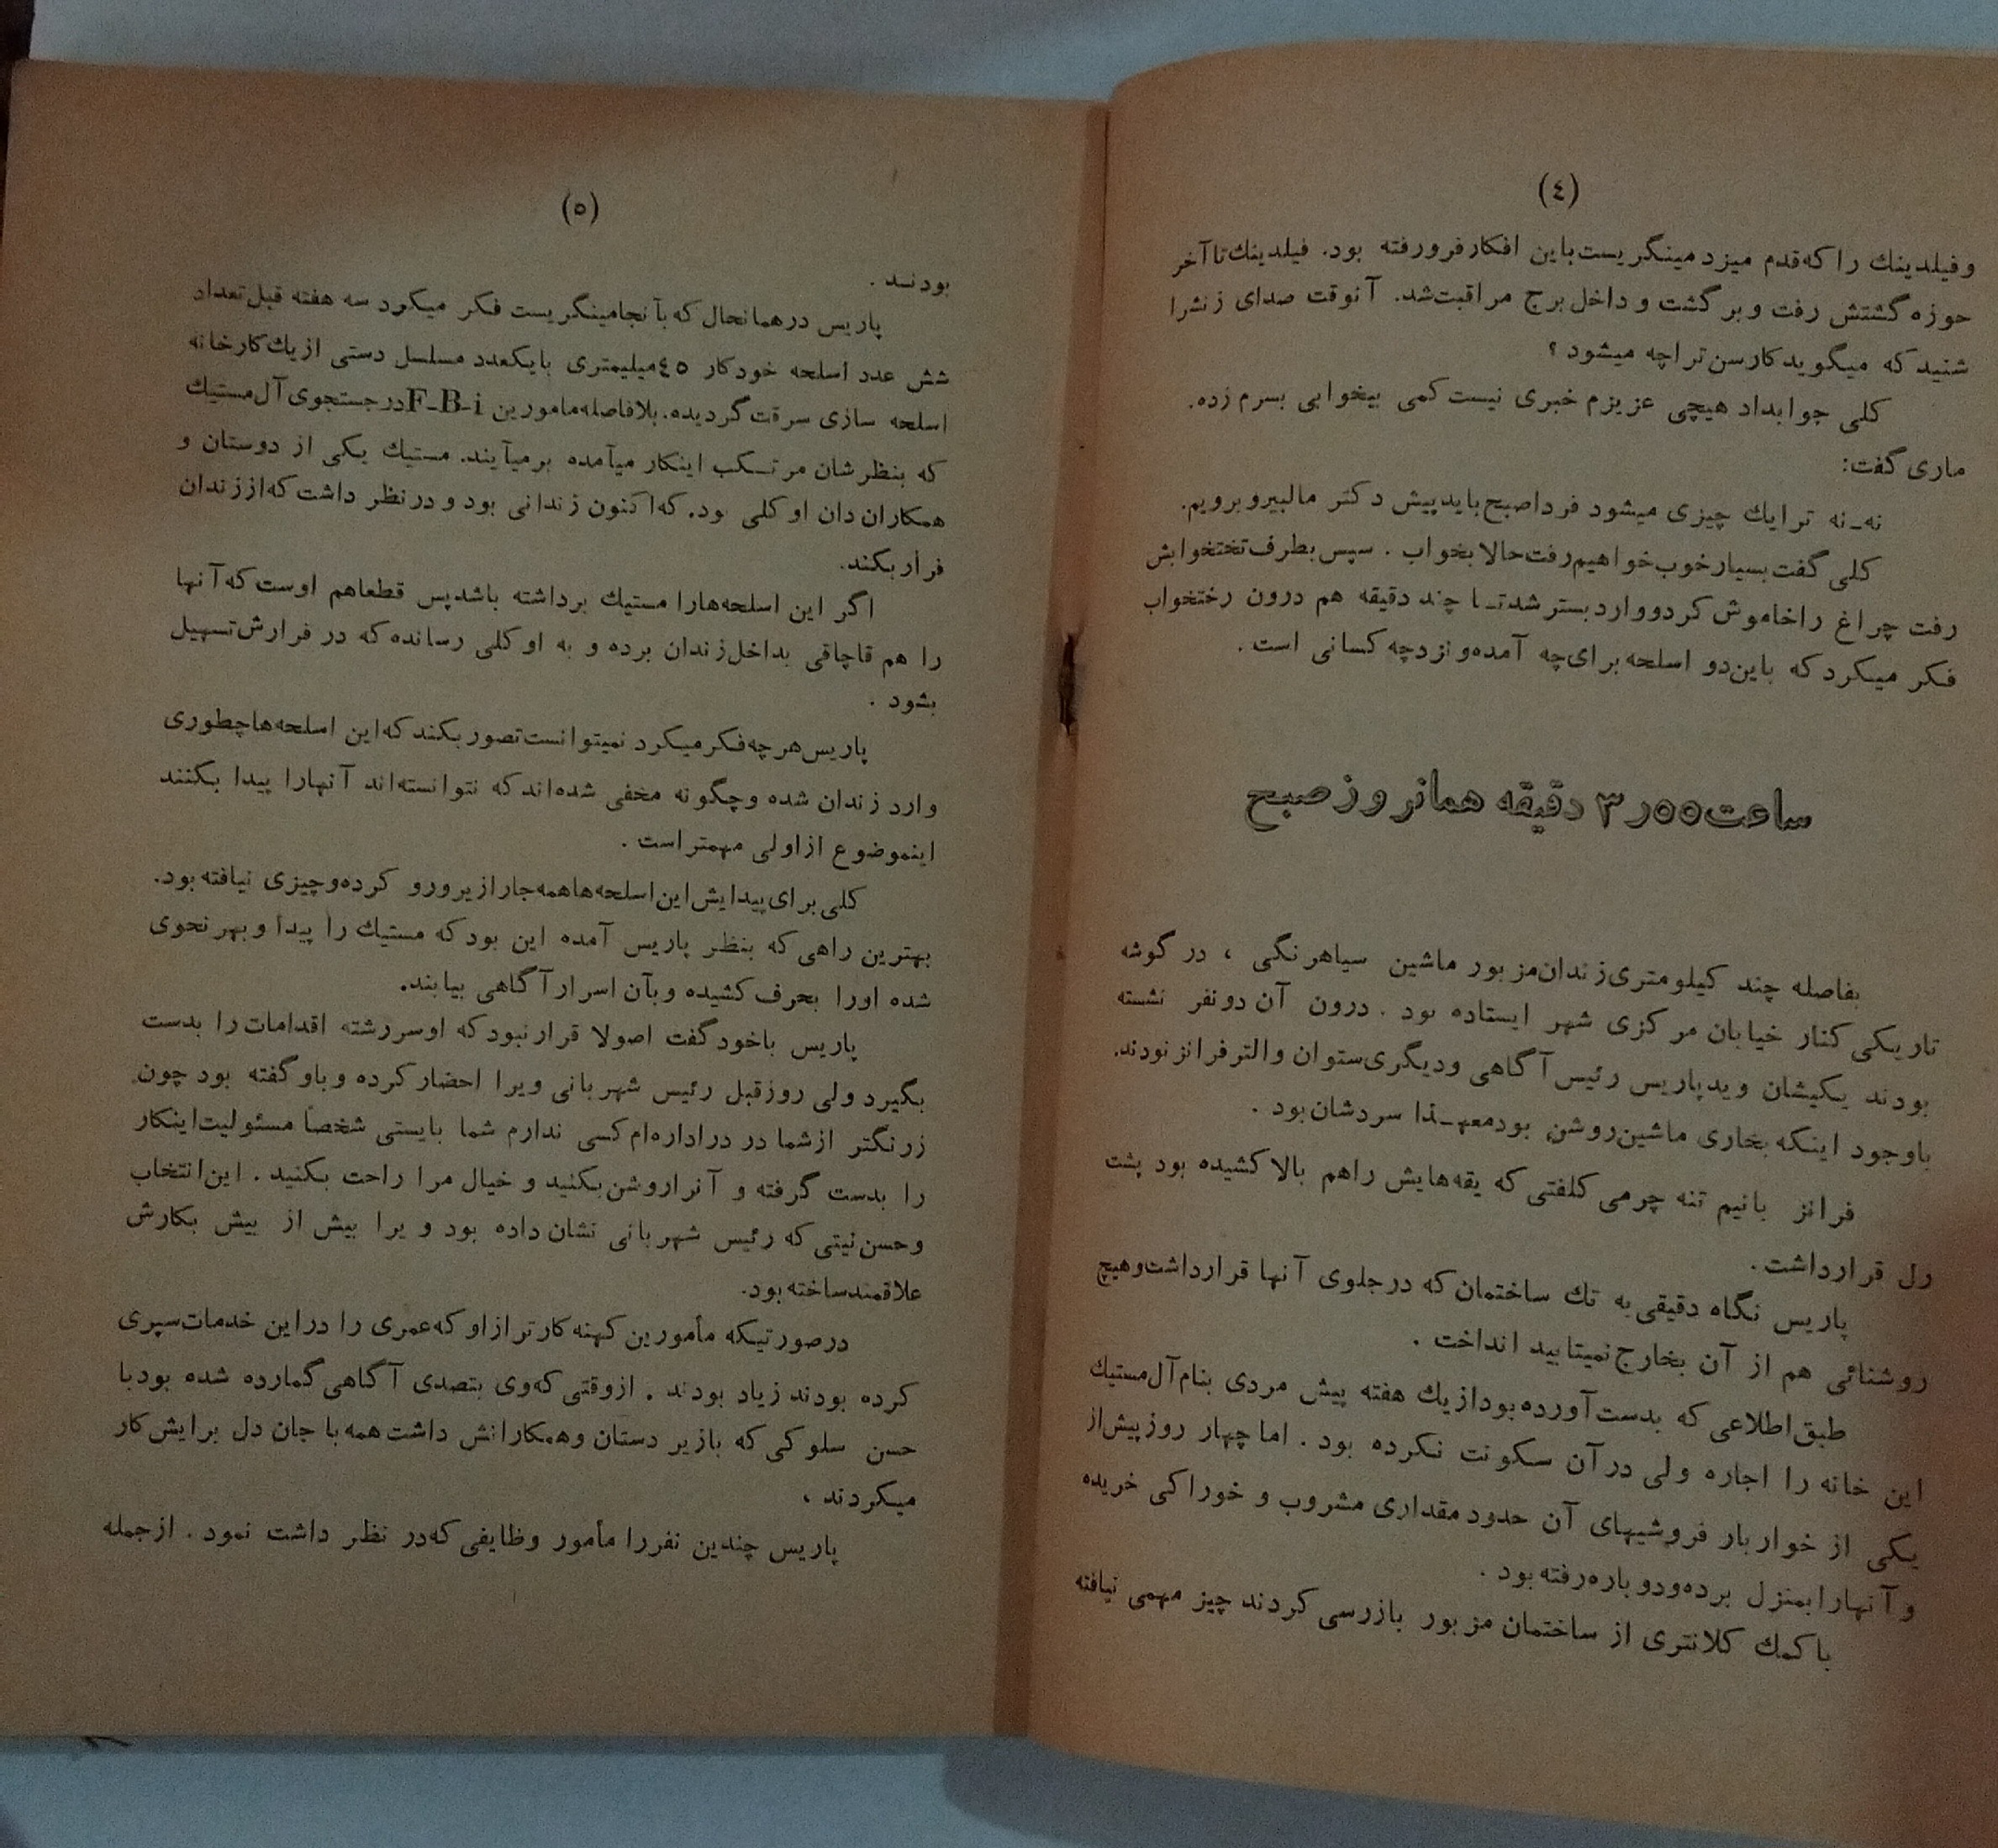 (٤)
و فیلدینك را که قدم میزد مینگریست باین افکار فرو رفته بود. فیلدینك تا آخر
حوزه گشتش رفت و بر گشت و داخل برج مراقبت شد. آنوقت صدای زنشرا
شنید که میگوید کارسن ترا چه میشود ؟
کلی جوابداد هیچی عزیزم خبری نیست کمی بیخوابی بسرم زده.
ماری گفت:
نه ـ نه ترا یك چیزی میشود فردا صبح باید پیش دکتر مالبیرو برویم.
کلی گفت بسیار خوب خواهیم رفت حالا بخواب . سپس بطرف تختخوابش
رفت چراغ را خاموش کرد و وارد بستر شد تـا چند دقیقه هم درون رختخواب
فکر میکرد که باین دو اسلحه برای چه آمده و نزد چه کسانی است .
ساعت ۵۵ر۳ دقیقه همانروز صبح
بفاصله چند کیلومتری زندان مزبور ماشین سیاهرنگی ، در گوشه
تاریکی کنار خیابان مرکزی شهر ایستاده بود . درون آن دو نفر نشسته
بودند یکیشان وید پاریس رئیس آگاهی و دیگری ستوان والتر فرانز نودند.
باوجود اینکه بخاری ماشین روشن بود معهـذا سردشان بود .
فرانز بانیم تنه چرمی کلفتی که یقه هایش راهم بالا کشیده بود پشت
رل قرار داشت .
پاریس نگاه دقیقی به تك ساختمان که در جلوی آنها قرار داشت و هیچ
روشنائی هم از آن بخارج نمیتابید انداخت .
طبق اطلاعی که بدست آورده بود از یك هفته پیش مردی بنام آل مستیك
این خانه را اجاره ولی در آن سکونت نکرده بود . اما چهار روز پیش از
یکی از خوار بار فروشیهای آن حدود مقداری مشروب و خوراکی خریده
و آنهارا بمنزل برده و دوباره رفته بود .
با کمك کلانتری از ساختمان مزبور بازرسی کردند چیز مهمی نیافته
(٥)
بودنـد .
پاریس در همانحال که بآنجا مینگریست فکر میکرد سه هفته قبل تعداد
شش عدد اسلحه خودکار ٤٥ میلیمتری با یکعدد مسلسل دستی از یك کارخانه
اسلحه سازی سرقت گردیده. بلافاصله مامورین F-B-i در جستجوی آل مستیك
که بنظرشان مرتـکب اینکار میآمده برمیآیند. مستیك یکی از دوستان و
همکاران دان او کلی بود. که اکنون زندانی بود و در نظر داشت که از زندان
فرار بکند.
اگر این اسلحه هارا مستیك برداشته باشد پس قطعاهم اوست که آنها
را هم قاچاقی بداخل زندان برده و به او کلی رسانده که در فرارش تسهیل
بشود .
پاریس هر چه فکر میکرد نمیتوانست تصور بکند که این اسلحه ها چطوری
وارد زندان شده و چگونه مخفی شده اند که نتوانسته اند آنهارا پیدا بکنند
اینموضوع از اولی مهمتر است .
کلی برای پیدایش این اسلحه ها همه جا را زیر و رو کرده و چیزی نیافته بود.
بهترین راهی که بنظر پاریس آمده این بود که مستیك را پیدا و بهر نحوی
شده اورا بحرف کشیده و بآن اسرار آگاهی بیابند.
پاریس باخود گفت اصولا قرار نبود که او سر رشته اقدامات را بدست
بگیرد ولی روز قبل رئیس شهربانی ویرا احضار کرده و باو گفته بود چون
زرنگتر از شما در در اداره ام کسی ندارم شما بایستی شخصاً مسئولیت اینکار
را بدست گرفته و آنرا روشن بکنید و خیال مرا راحت بکنید . این انتخاب
و حسن نیتی که رئیس شهربانی نشان داده بود و یرا بیش از بیش بکارش
علاقمند ساخته بود.
در صورتیکه مأمورین کهنه کارتر از او که عمری را در این خدمات سپری
کرده بودند زیاد بودند . از وقتی که وی بتصدی آگاهی گمارده شده بود با
حسن سلوکی که با زیر دستان و همکارانش داشت همه با جان دل برایش کار
میکردند ،
پاریس چندین نفر را مأمور وظایفی که در نظر داشت نمود . از جمله